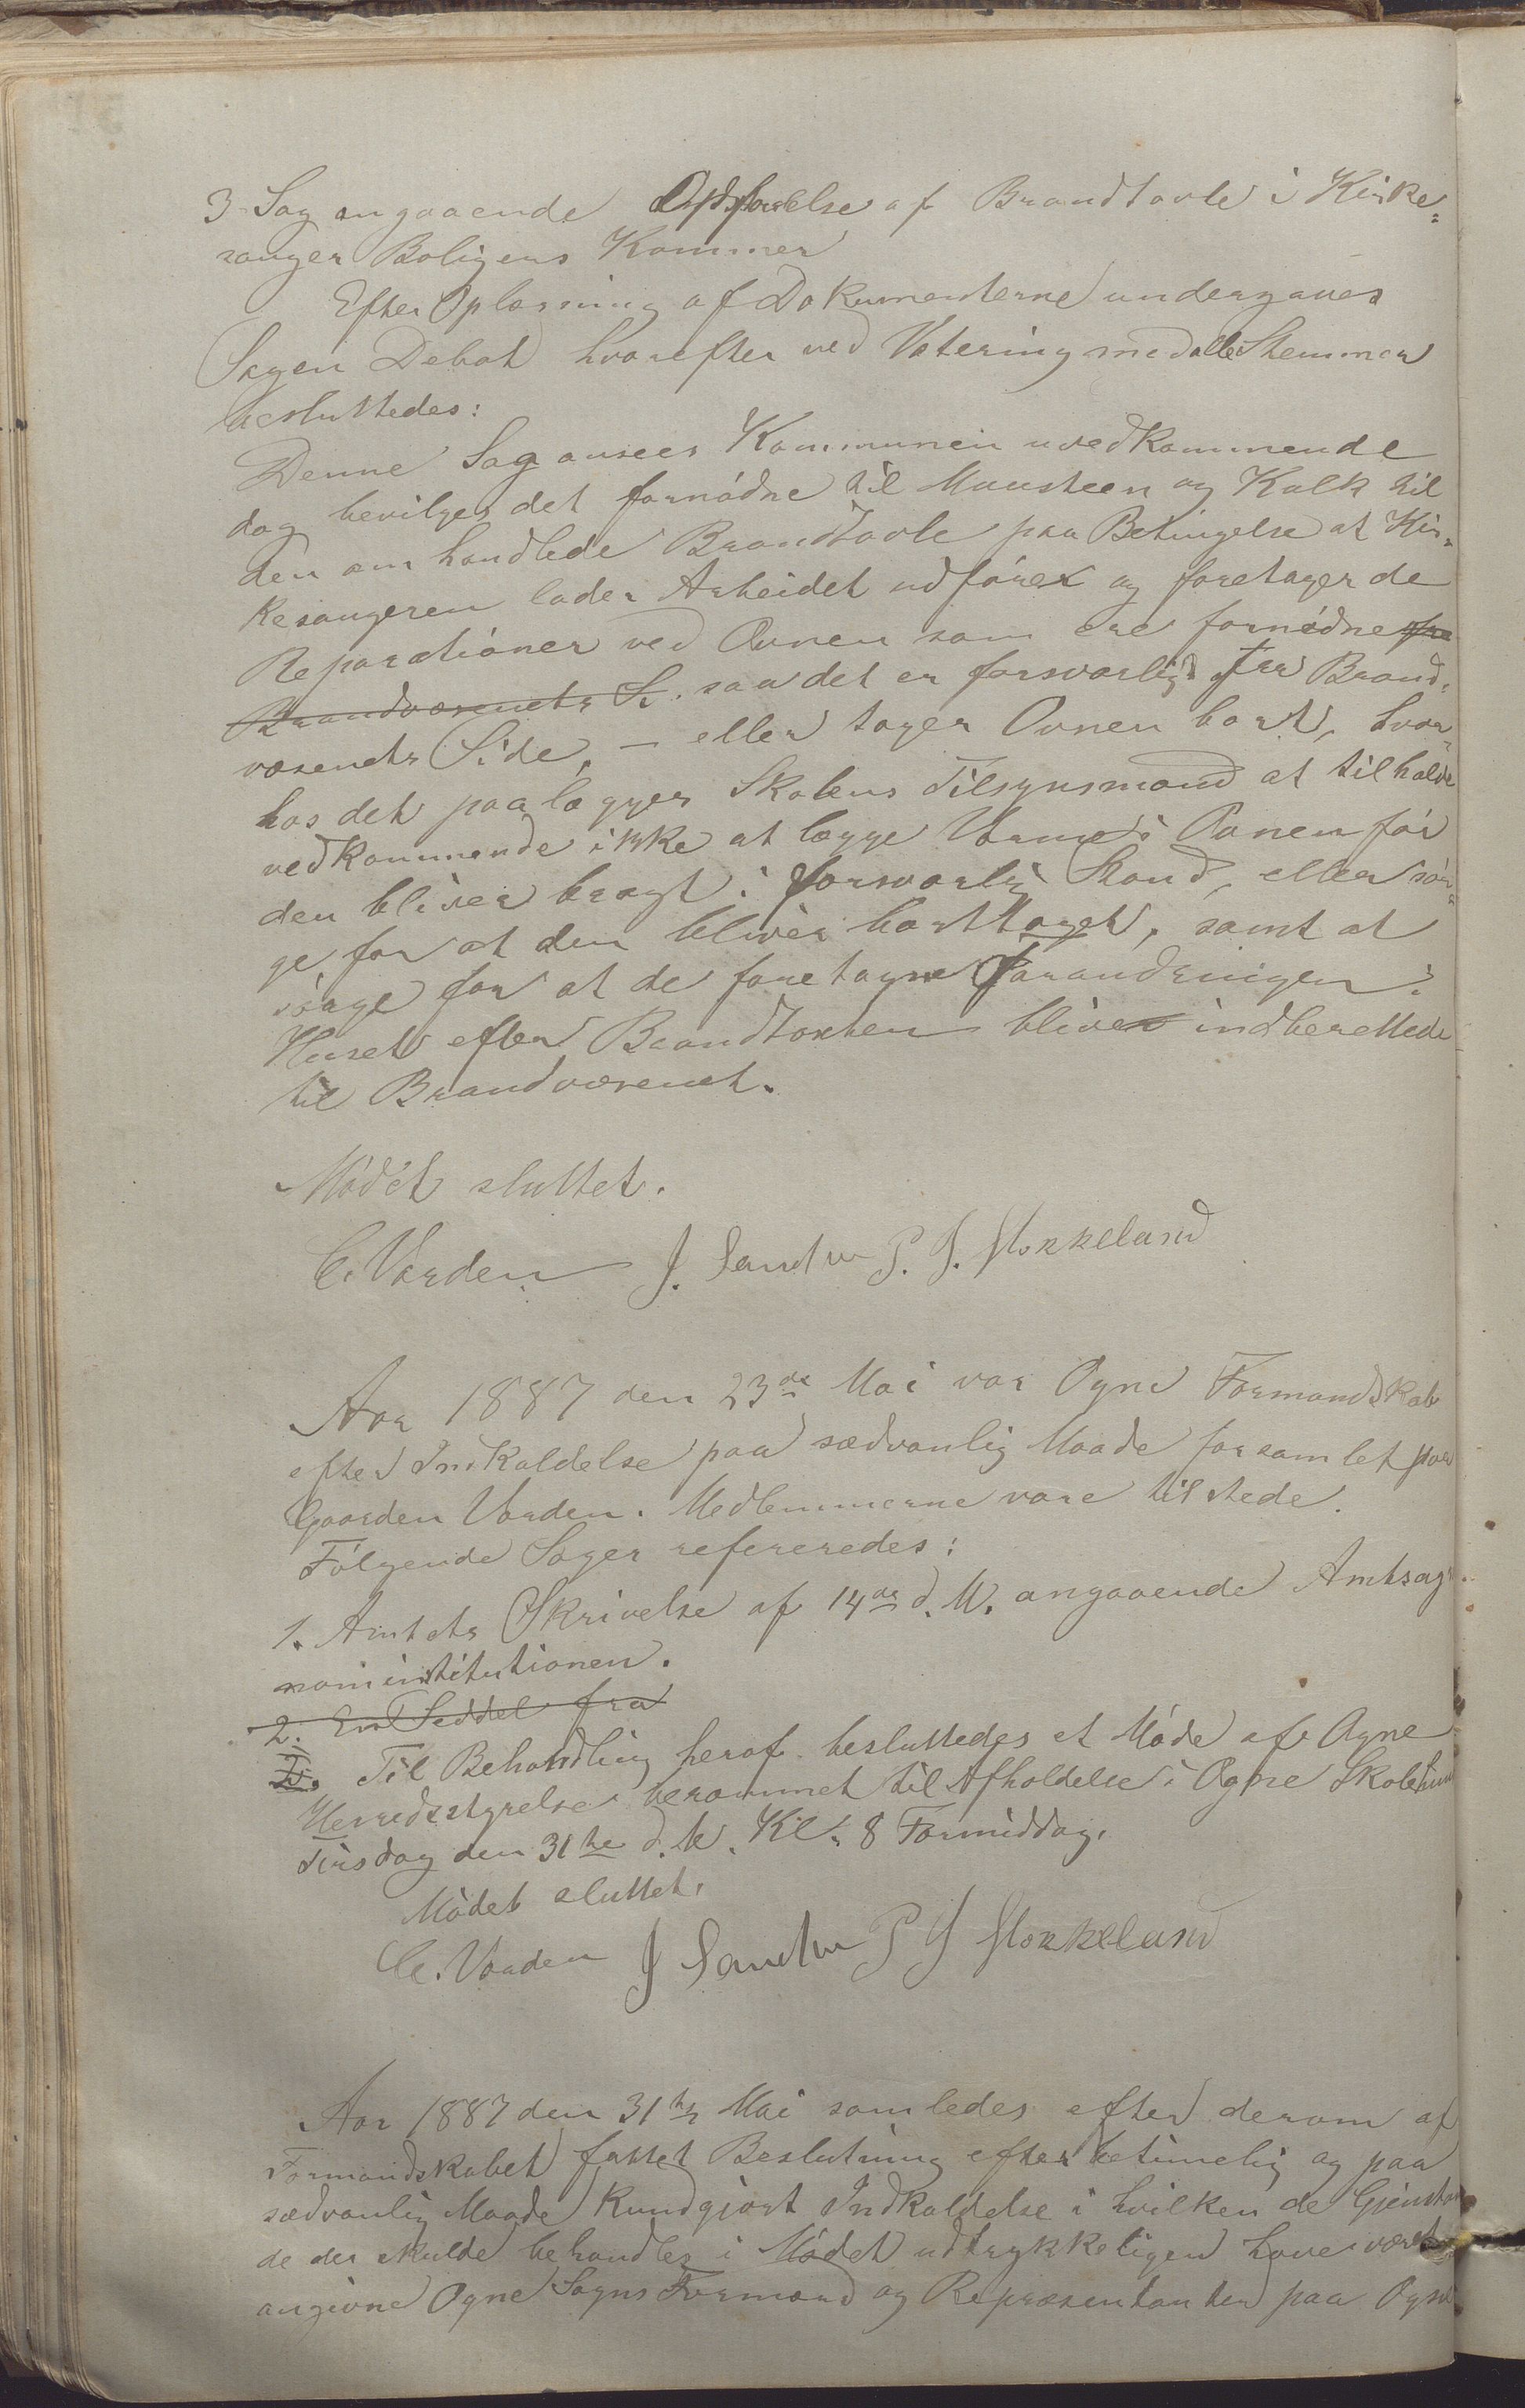 3 Sag angaaende Opførelse af Brandtavle i Kirke-
sanger Boligens Kammer
Efter Oplæsning af Dokumenterne undergaves
Sagen Debat hvorefter ved Votering med alle Stemmer
besluttedes:
Denne Sag ansees Kommunen uvedkommende
dog bevilges det fornødne til Muursteen og Kalk til
den om handlede Brandtavle paa Betingelse at Kir-
kesangeren lader Arbeidet udføres og foretager de
Reparationer ved Ovnen som ere fornødne fra
Brandvæsenets S. saa det er forsvarligt fra Brand-
væsenets Side, – eller tager Ovnen bort, hvor-
hos det paalægges Skolens Tilsynsmand at tilholde
vedkommende ikke at lægge Varme i Ovnen før
den bliver bragt i forsvarlig Stand, eller sør-
ge for at den bliver borttaget, samt at
sørge for at de foretagne Forandringer i
Huset efter Brandtaxten bliver indberettede
til Brandvæsenet.
Mødet sluttet.
C. Varden J. Sandve P. J. Stokkeland
Aar 1887 den 23de Mai var Ogne Formandskab
efter Indkaldelse paa sædvanlig Maade forsamlet paa
Gaarden Varden. Medlemmerne vare tilstede.
Følgende Sager refereredes:
1. Amtets Skrivelse af 14de d. M. angaaende Amtsag-
nominstitutionen.
2. En Seddel fra
Til Behandling heraf besluttedes et Møde af Ogne
Herredsstyrelse berammet til Afholdelse i Ogne Skolehuus
Tirsdag den 31te d. M. Kl. 8 Formiddag.
Mødet sluttet.
C. Varden J Sandve P J Stokkeland
Aar 1887 den 31te Mai samledes efter derom af
Formandskabet fattet Beslutning efter betimelig og paa
sædvanlig Maade kundgjort Indkaldelse i hvilken de Gjenstan
de der skulde behandles i Mødet udtrykkeligen have været
angivne Ogne Sogns Formænd og Repræsentanter paa Ogne